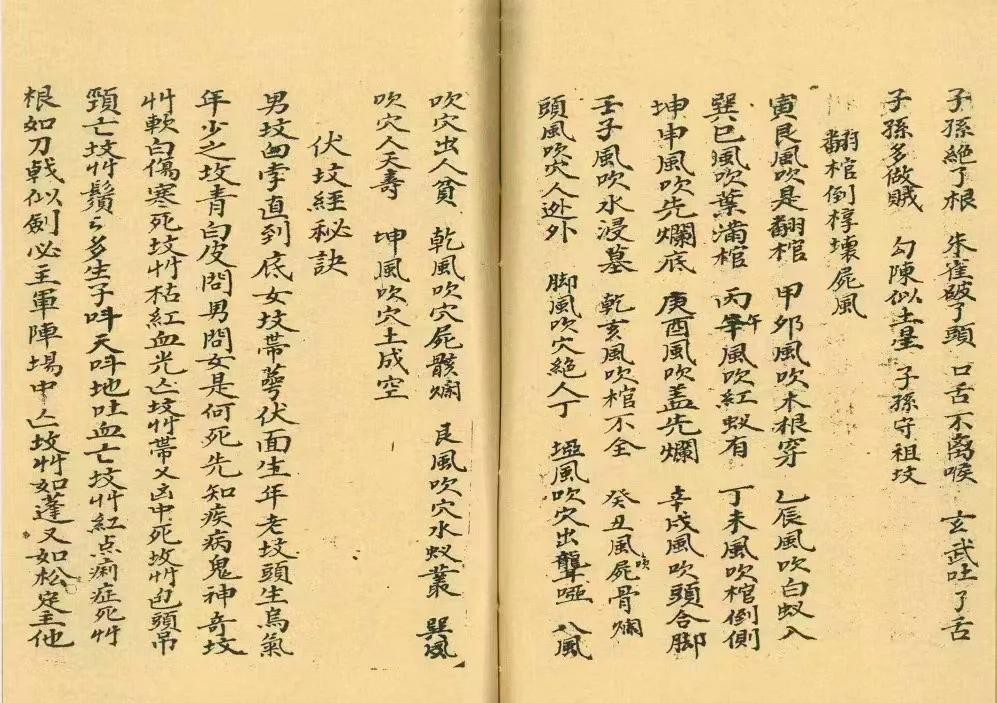 子孫絕了根　朱雀破了頭　口舌不离喉　玄武吐了舌
子孫多做賊　勾陳似土星　子孫守祖坟
翻棺倒椁壞屍風
寅艮風吹是翻棺　甲卯風吹木根穿　乙辰風吹白蚁入
巽巳風吹葉滿棺　丙午風吹紅蚁有　丁未風吹棺倒側
坤申風吹先爛底　庚酉風吹盖先爛　辛戌風吹頭合脚
壬子風吹水浸墓　乾亥風吹棺不全　癸丑風吹屍骨爛
頭風吹穴人外　脚風吹穴絕人丁　風吹穴出聾啞　八風
吹穴出人貧　乾風吹穴屍骸爛　艮風吹穴水蚁叢　巽風
吹穴人夭壽　坤風吹穴土成空
伏坟經秘訣
男坟直到底女坟帶伏面生年老坟頭生烏氣
年少之坟青白皮問男問女是何死先知疾病鬼神奇坟
艸軟白傷寒死坟艸枯紅血光亡坟艸帶乂凶中死坟艸包頭吊
頸亡坟艸鬚々多生子呌天呌地吐血亡坟艸紅点痢症死艸
根如刀戟似劍必主軍陣場中亡坟艸如蓬又如松定主他